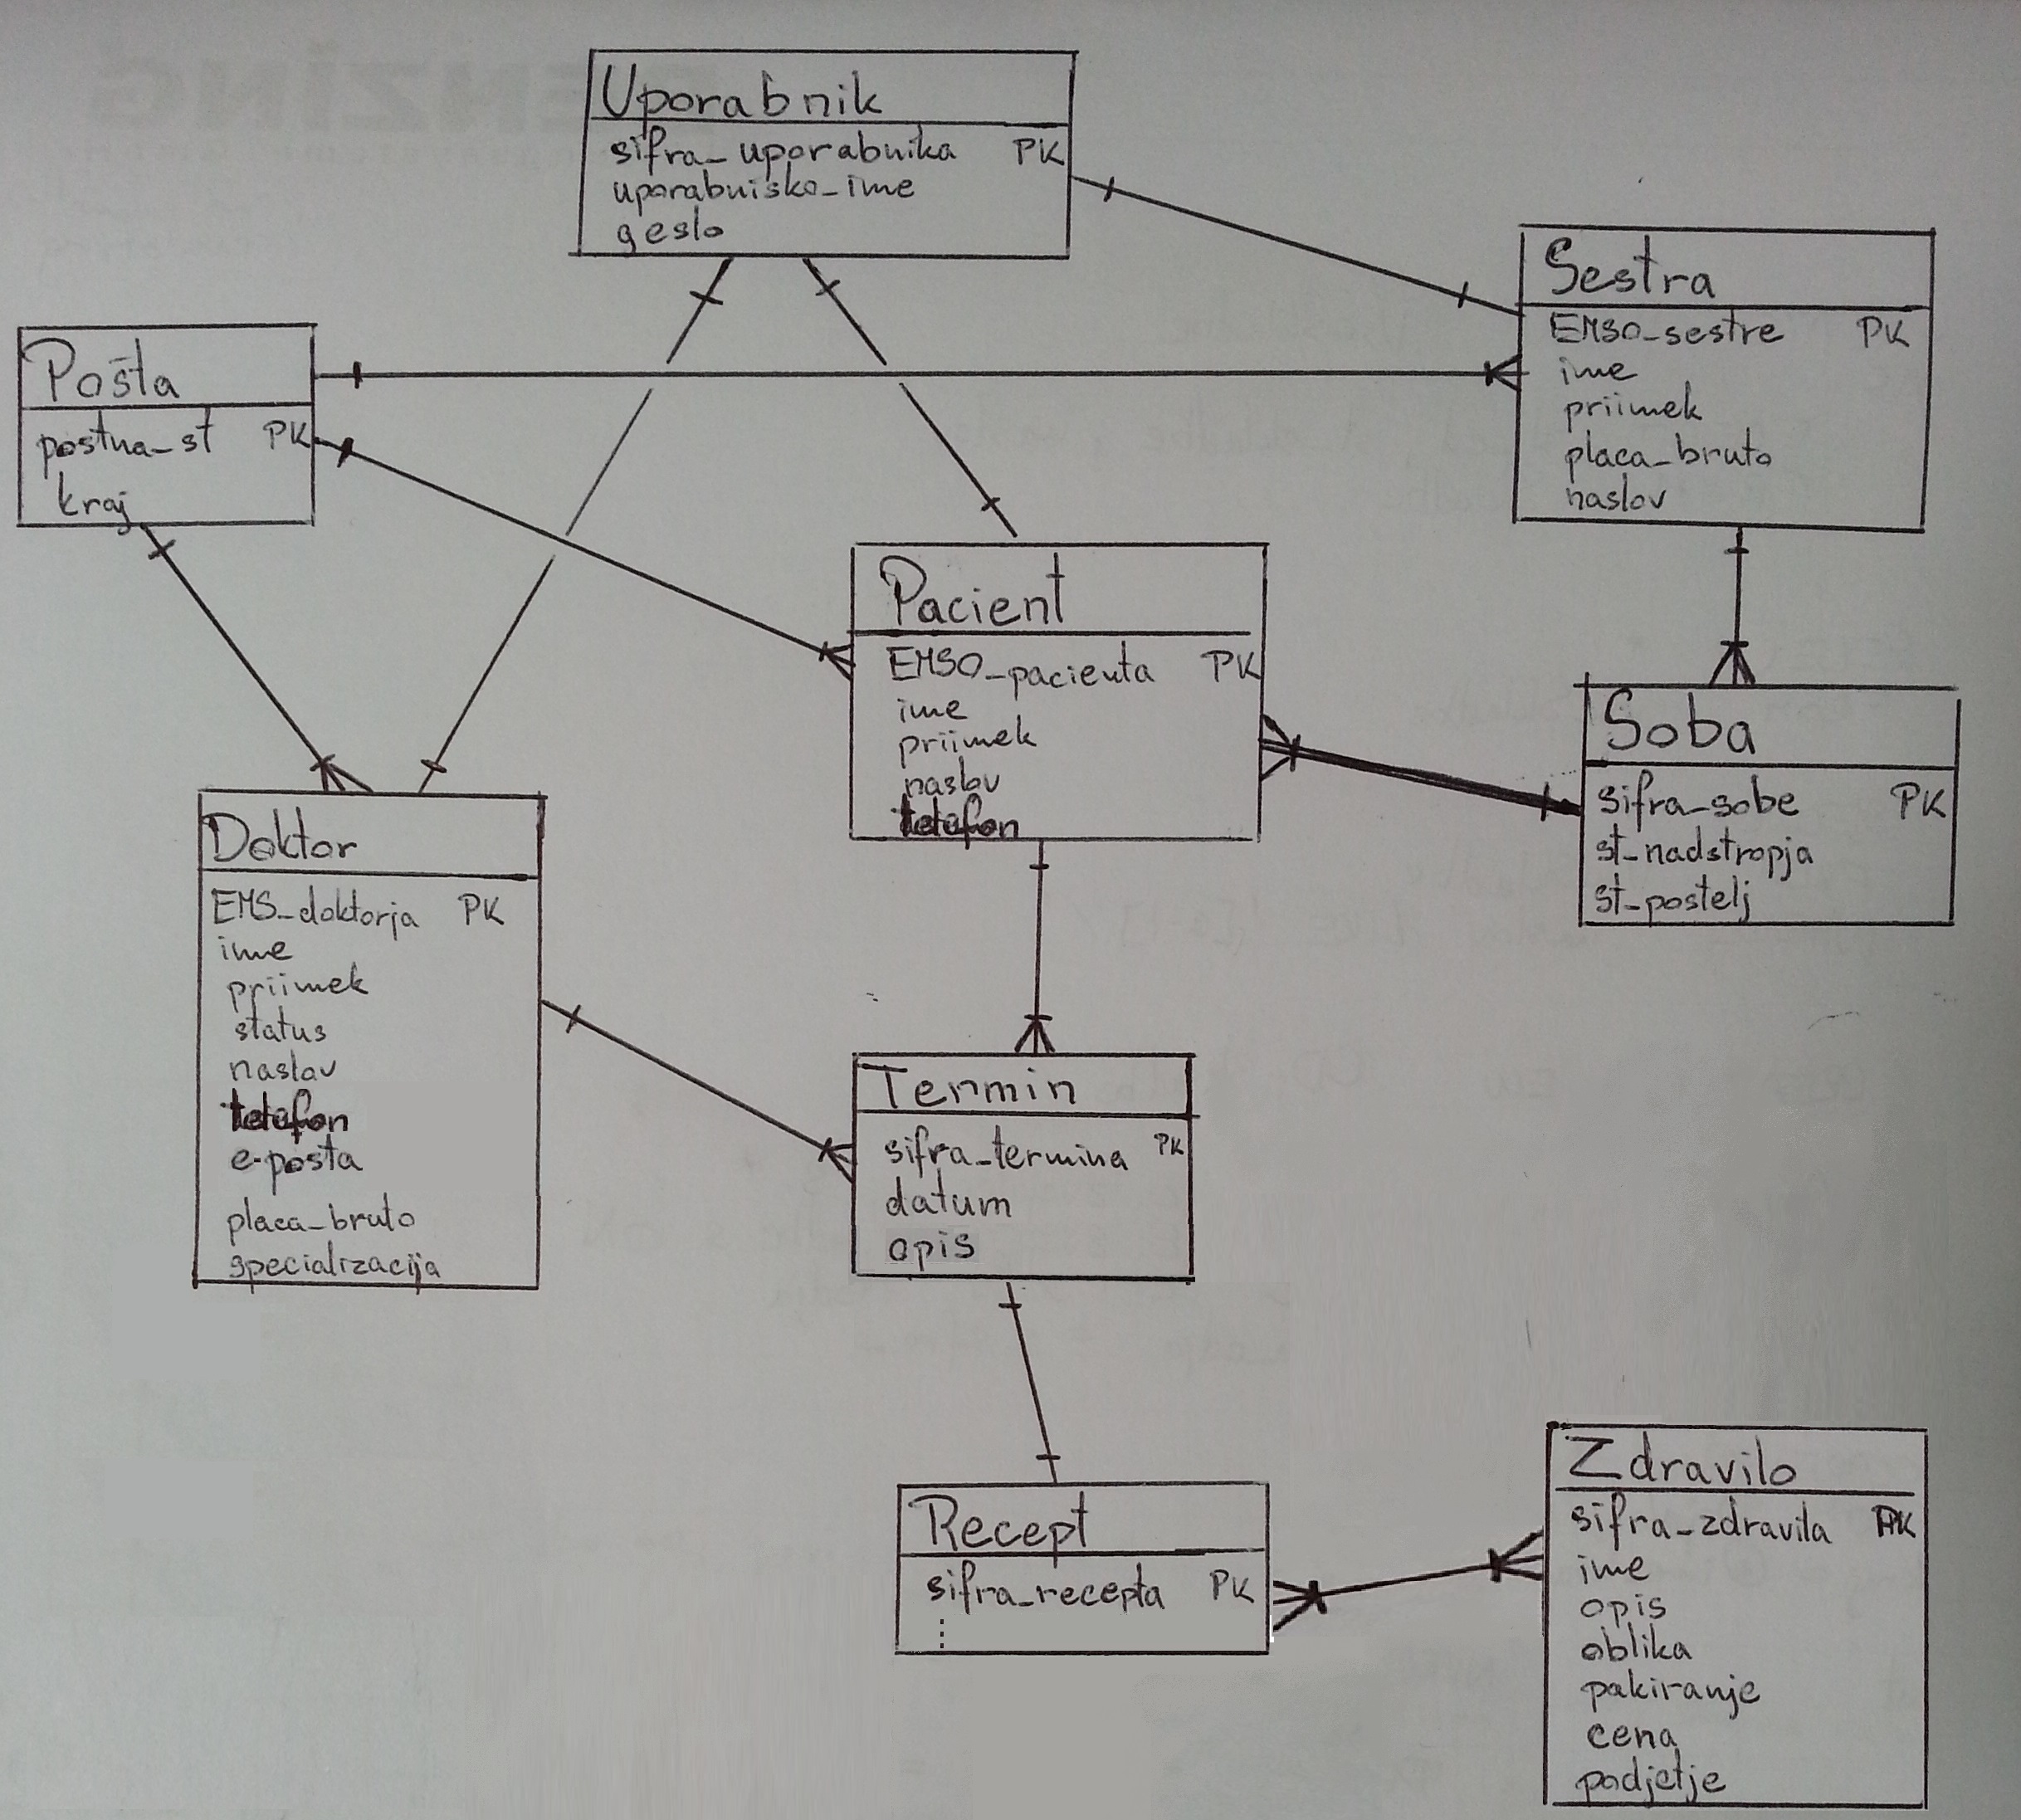 Uporabnik
sifra_uporabnika PK
uporabnisko_ime
geslo
Pošta
postna_st PK
kraj
Sestra
EMSO_sestre PK
ime
priimek
placa_bruto
naslov
Pacient
EMSO_pacienta PK
ime
priimek
naslov
telefon
Soba
sifra_sobe PK
st_nadstropja
st_postelj
Doktor
EMS_doktorja PK
ime
priimek
status
naslov
telefon
e-posta
placa_bruto
specializacija
Termin
sifra_termina PK
datum
opis
Recept
sifra_recepta PK
Zdravilo
sifra_zdravila PK
ime
opis
oblika
pakiranje
cena
podjetje